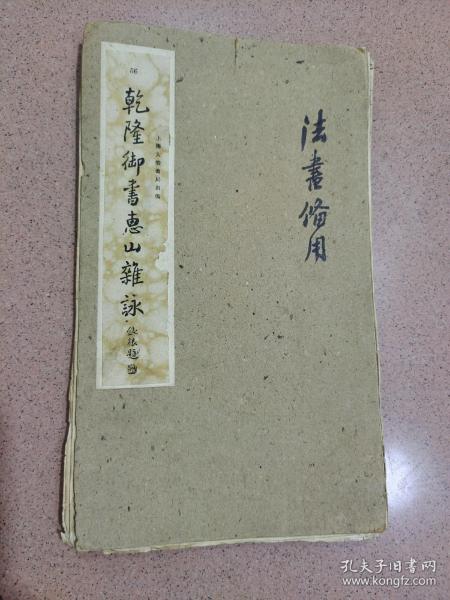 法書備用
上海大眾書局出版
56
乾隆御書惠山雜詠
孔夫子旧书网
www.kongfz.com